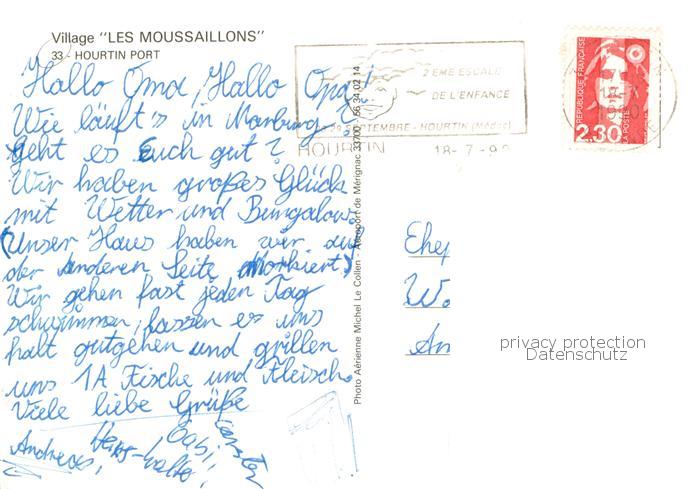 Village "LES MOUSSAILLONS"
33 - HOURTIN PORT
Hallo Oma, Hallo Opa!
Wie läuft's in Marburg?
Geht es Euch gut?
Wir haben großes Glück
mit Wetter und Bungalow.
(Unser Haus haben wir auf
der anderen Seite markiert)
Wir gehen fast jeden Tag
schwimmen, lassen es uns
halt gutgehen und grillen
uns 1A Fische und Fleisch.
Viele liebe Grüße
Andreas, Heinz-Walter, Gabi, Carsten
Photo Aérienne Michel Le Collen - Aéroport de Mérignac 33700 - 56 34 02 14
2 EME ESCALE
DE L'ENFANCE
SEPTEMBRE - HOURTIN (Médoc)
HOURTIN 18-7-90
RÉPUBLIQUE FRANÇAISE
LA POSTE
2,30
Ehe
W
An
privacy protection
Datenschutz